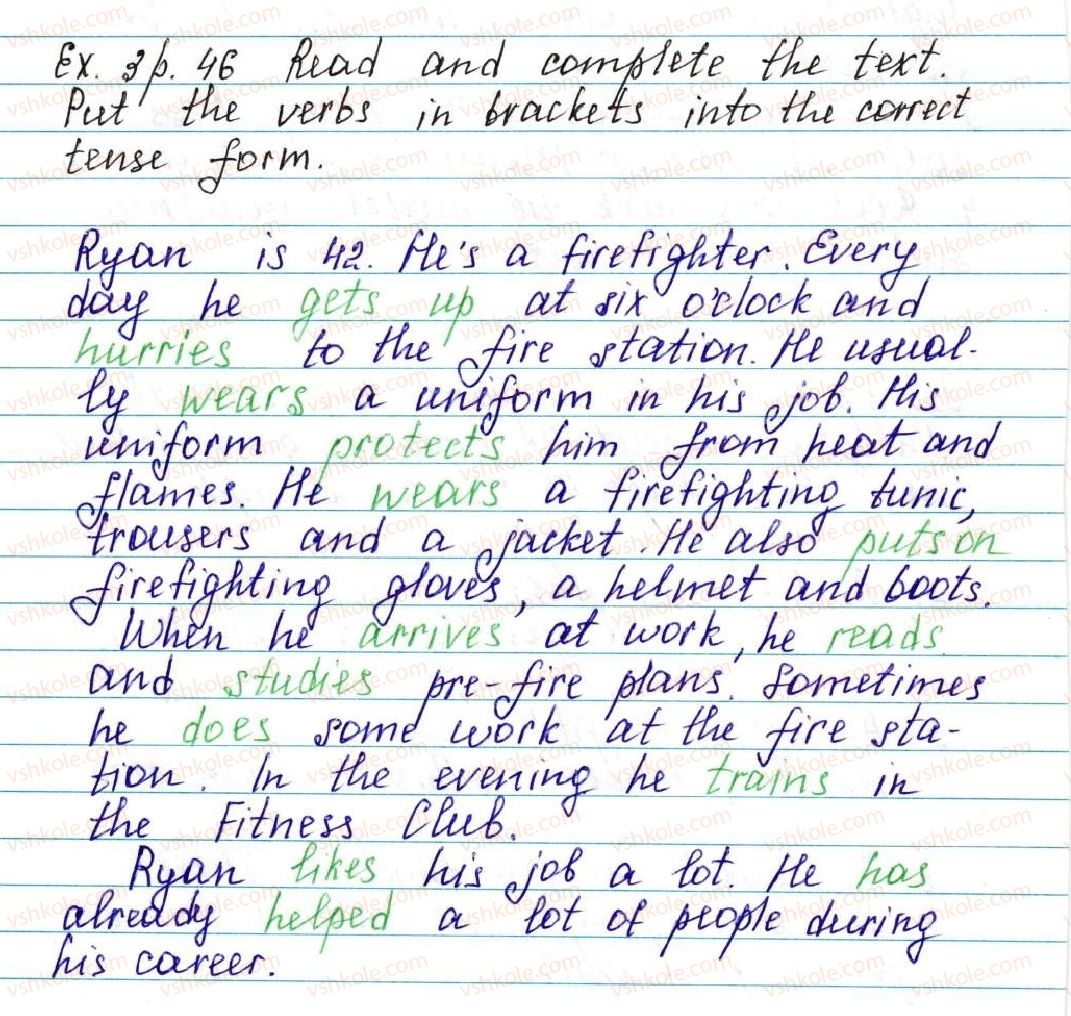 Ex. 3 p. 46 Read and complete the text.
Put the verbs in brackets into the correct
tense form.
Ryan is 42. He's a firefighter. Every
day he gets up at six o'clock and
hurries to the fire station. He usual-
ly wears a uniform in his job. His
uniform protects him from heat and
flames. He wears a firefighting tunic,
trousers and a jacket. He also puts on
firefighting gloves, a helmet and boots.
When he arrives at work, he reads
and studies pre-fire plans. Sometimes
he does some work at the fire sta-
tion. In the evening he trains in
the Fitness Club.
Ryan likes his job a lot. He has
already helped a lot of people during
his career.